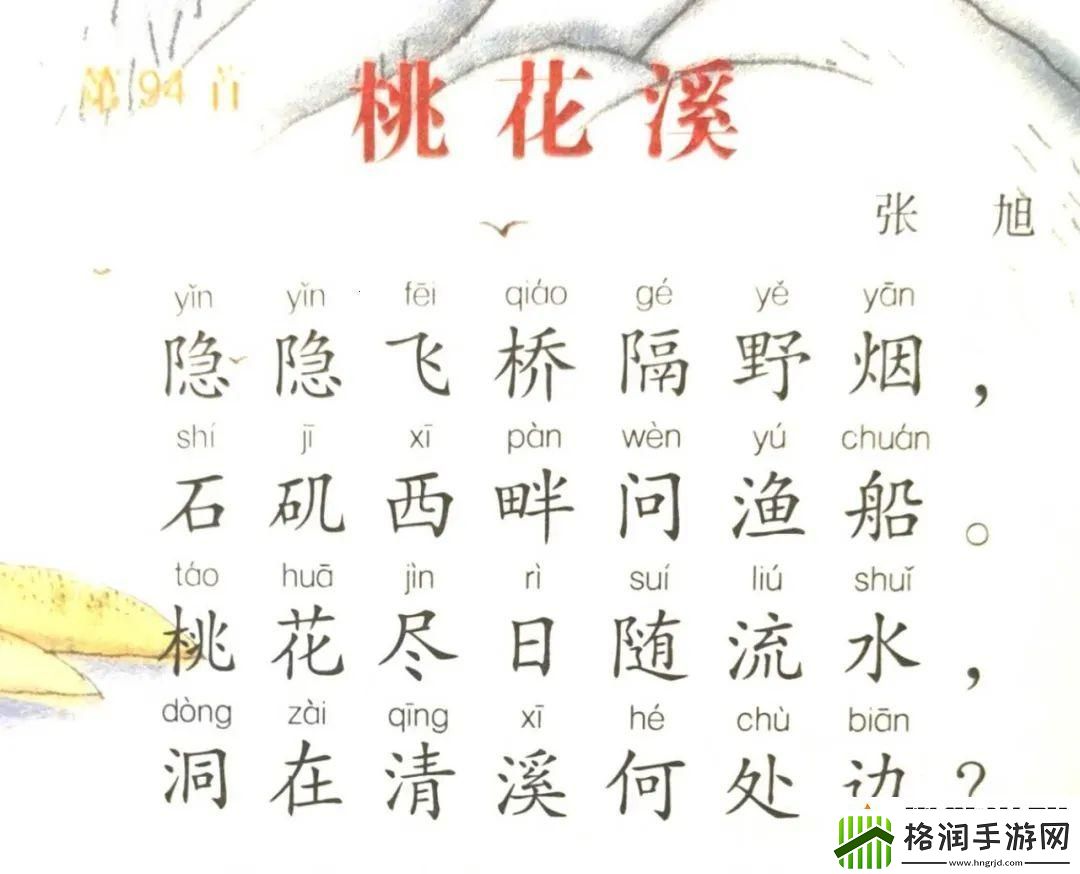 第94首
桃花溪
张 旭
yǐn yǐn fēi qiáo gé yě yān
隐隐飞桥隔野烟，
shí jī xī pàn wèn yú chuán
石矶西畔问渔船。
táo huā jìn rì suí liú shuǐ
桃花尽日随流水，
dòng zài qīng xī hé chù biān
洞在清溪何处边？
格润手游网
www.hngrjd.com